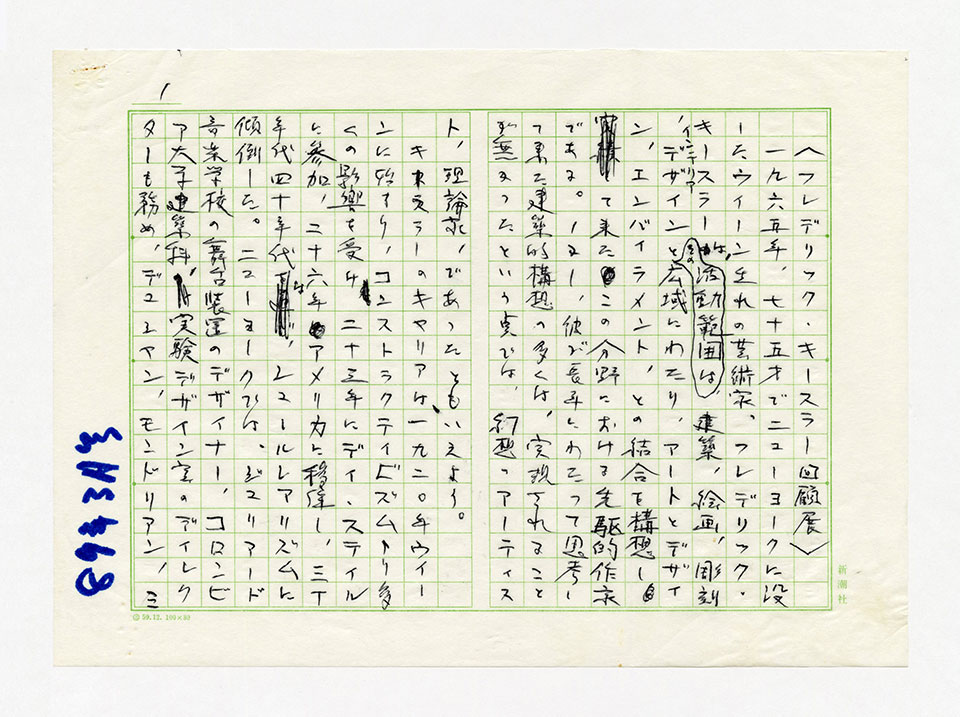 1
〈フレデリック・キースラー回顧展〉
一九六五年、七十五才でニューヨークに没
したウィーン生れの芸術家。フレデリック・
キースラーは、その活動範囲は、建築、絵画、彫刻
、インテリア
、デザインと広域にわたり、アートとデザイ
ン、エンバイラメント、との結合を構想し
て来たこの分野における先駆的作家
である。しかし、彼が長年にわたって思考し
て来た建築的構想の多くは、実現されること
が無かったという点では、幻想のアーティス
ト、理論家、であったともいえよう。
キースラーのキャリアは、一九二〇年ウィー
ンに始まり、コンストラクティビズムより多
くの影響を受け、二十三年にディ・スティル
に参加、二十六年アメリカに移住し、三十
年代四十年代は、シュールレアリズムに
傾倒した。ニューヨークでは。ジュリアード
音楽学校の舞台装置のデザイナー、コロンビ
ア大学建築科、実験デザイン室のディレク
ターも務め、デュシャン、モンドリアン、ミ
89年3月号
新潮社